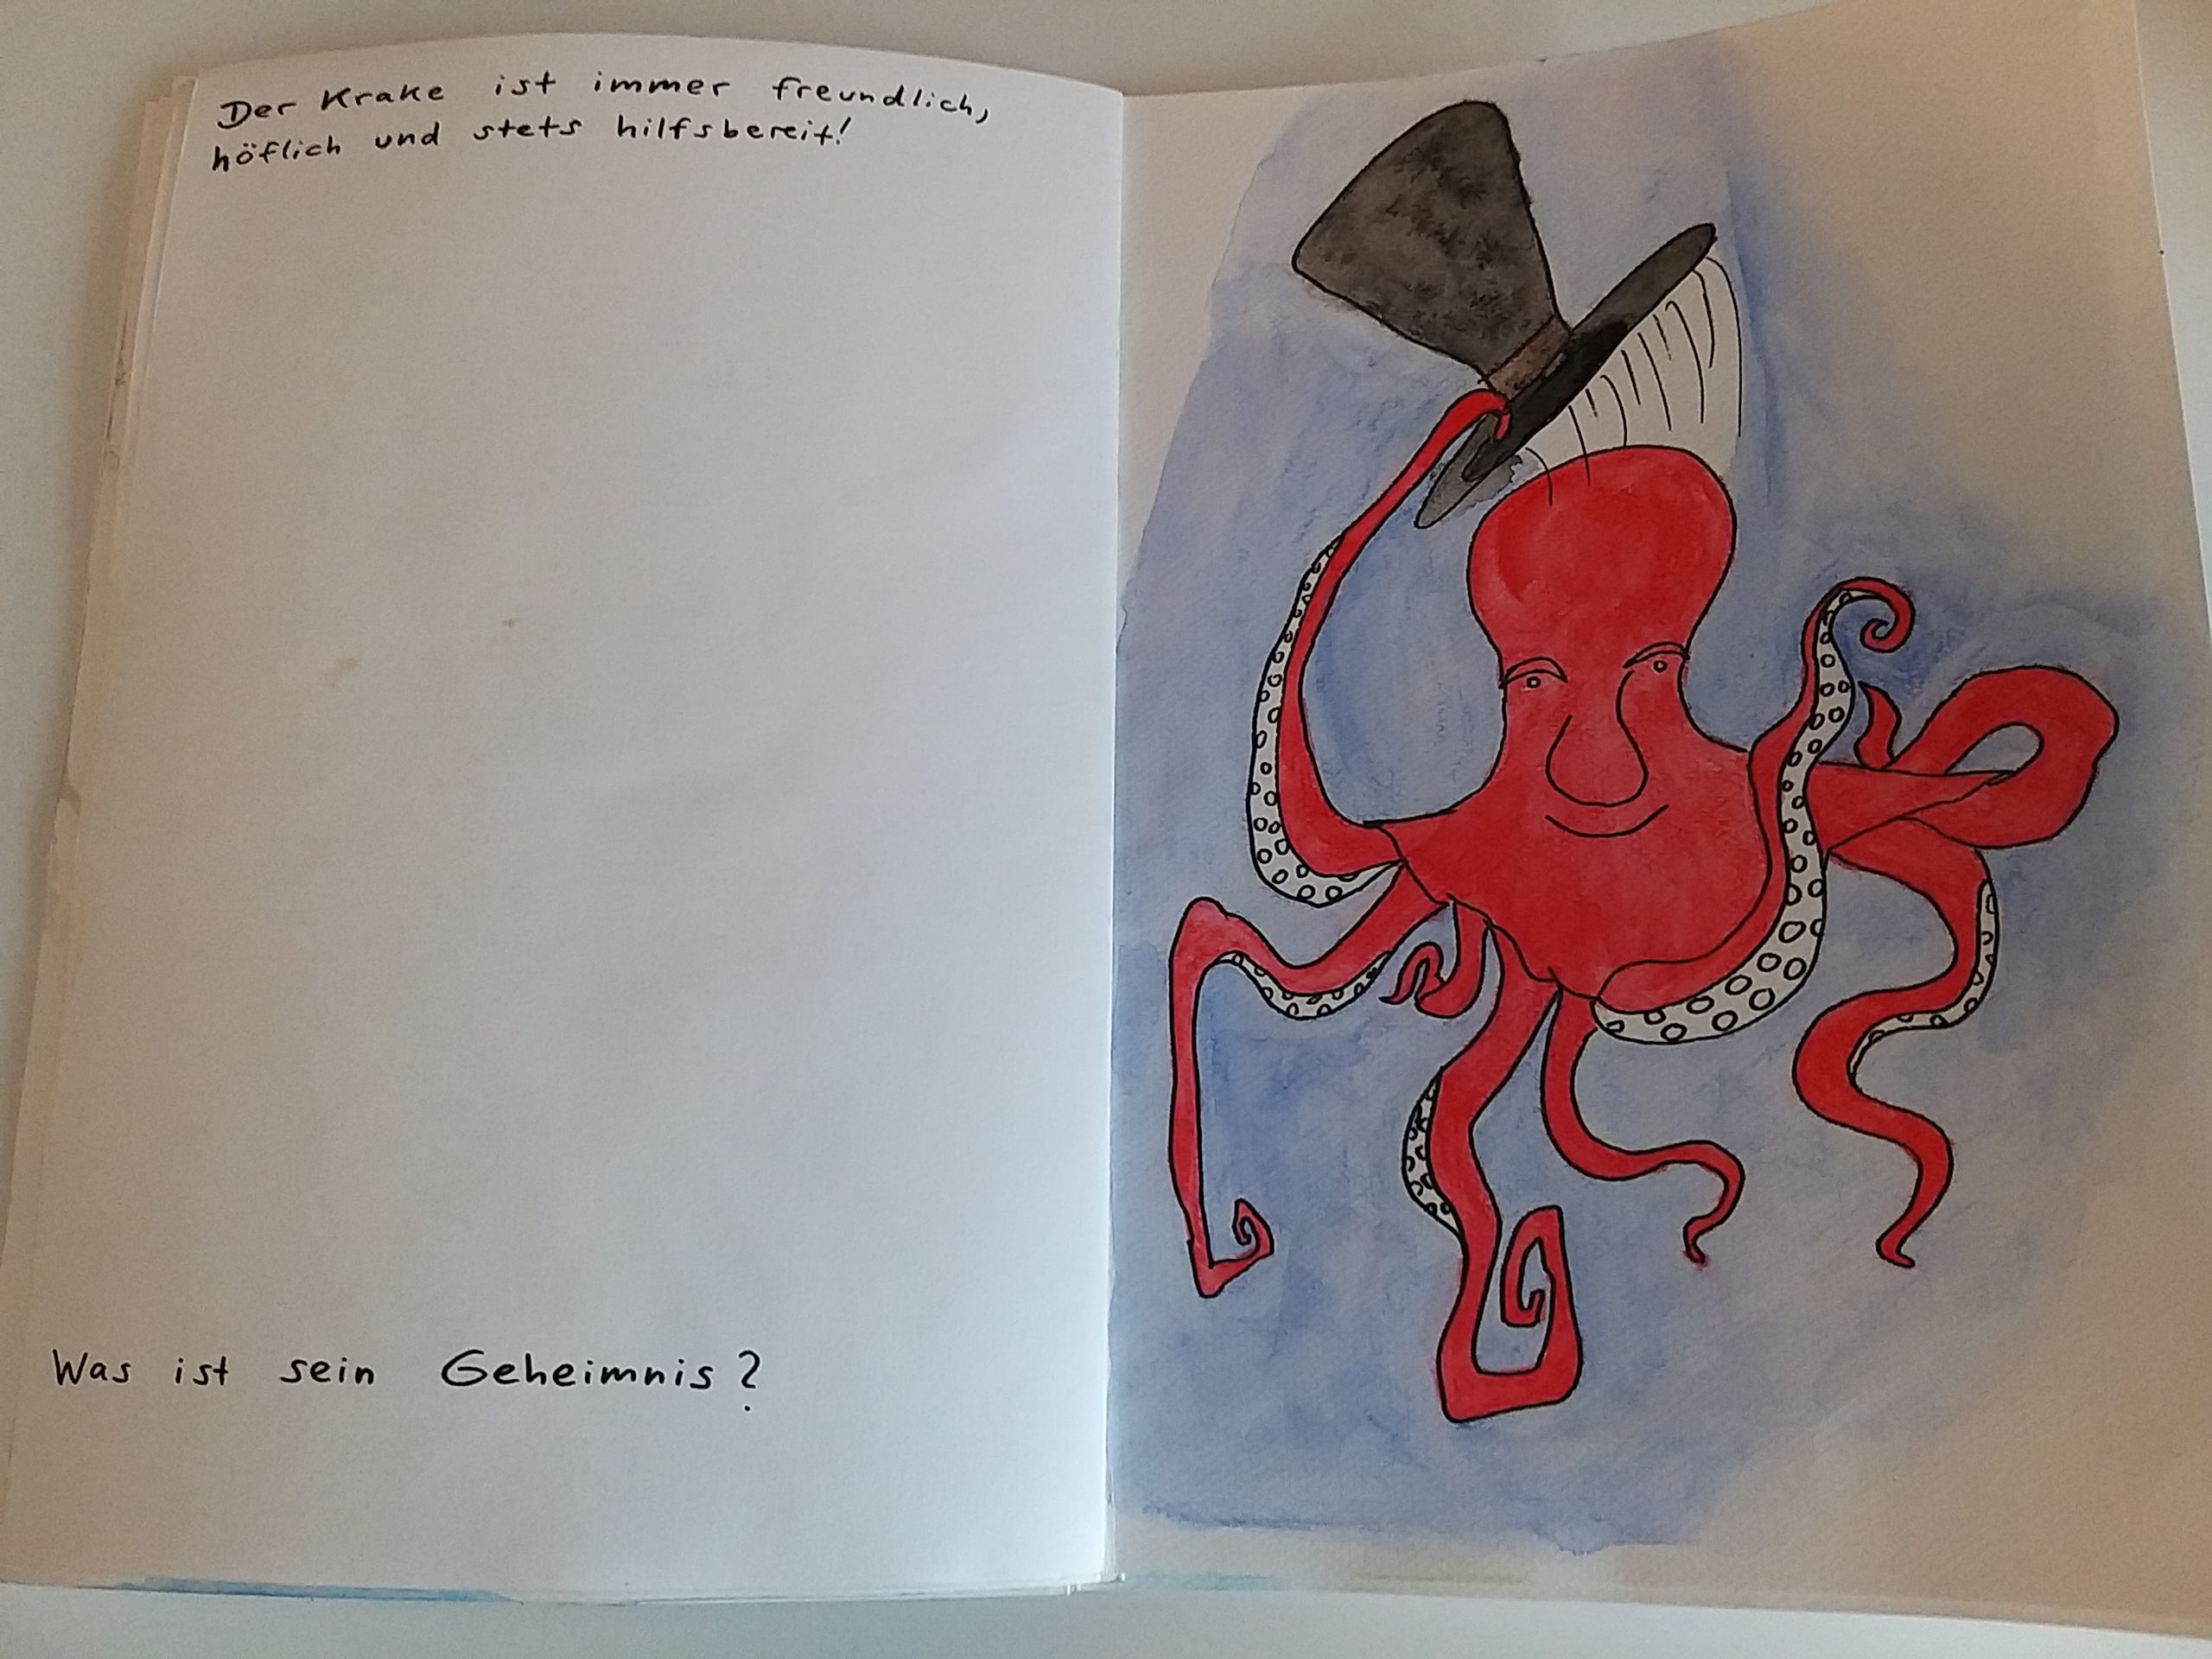 Der Krake ist immer freundlich,
höflich und stets hilfsbereit!
Was ist sein Geheimnis?